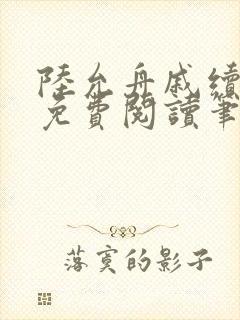 陸允舟戚續
免費閱讀筆
落寞的影子